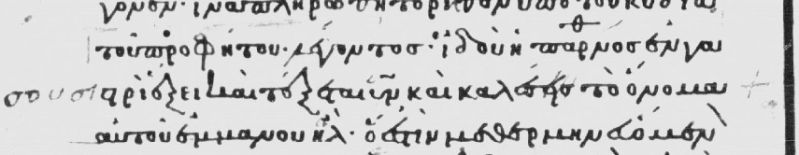 γονεν· ἵνα πληρωθῆ τὸ ρηθὲν ὑπὸ τοῦ κυ δια
τοῦ προφήτου· λέγοντος· ἰδοὺ ἡ παρθενος ἐν γα
σουσι στρὶ ἕξει καὶ τέξεται υν καὶ καλέσης τὸ ὄνομα
αὐτοῦ ἐμμανουήλ· ὅ ἐστὶν μεθερμηνευόμεν